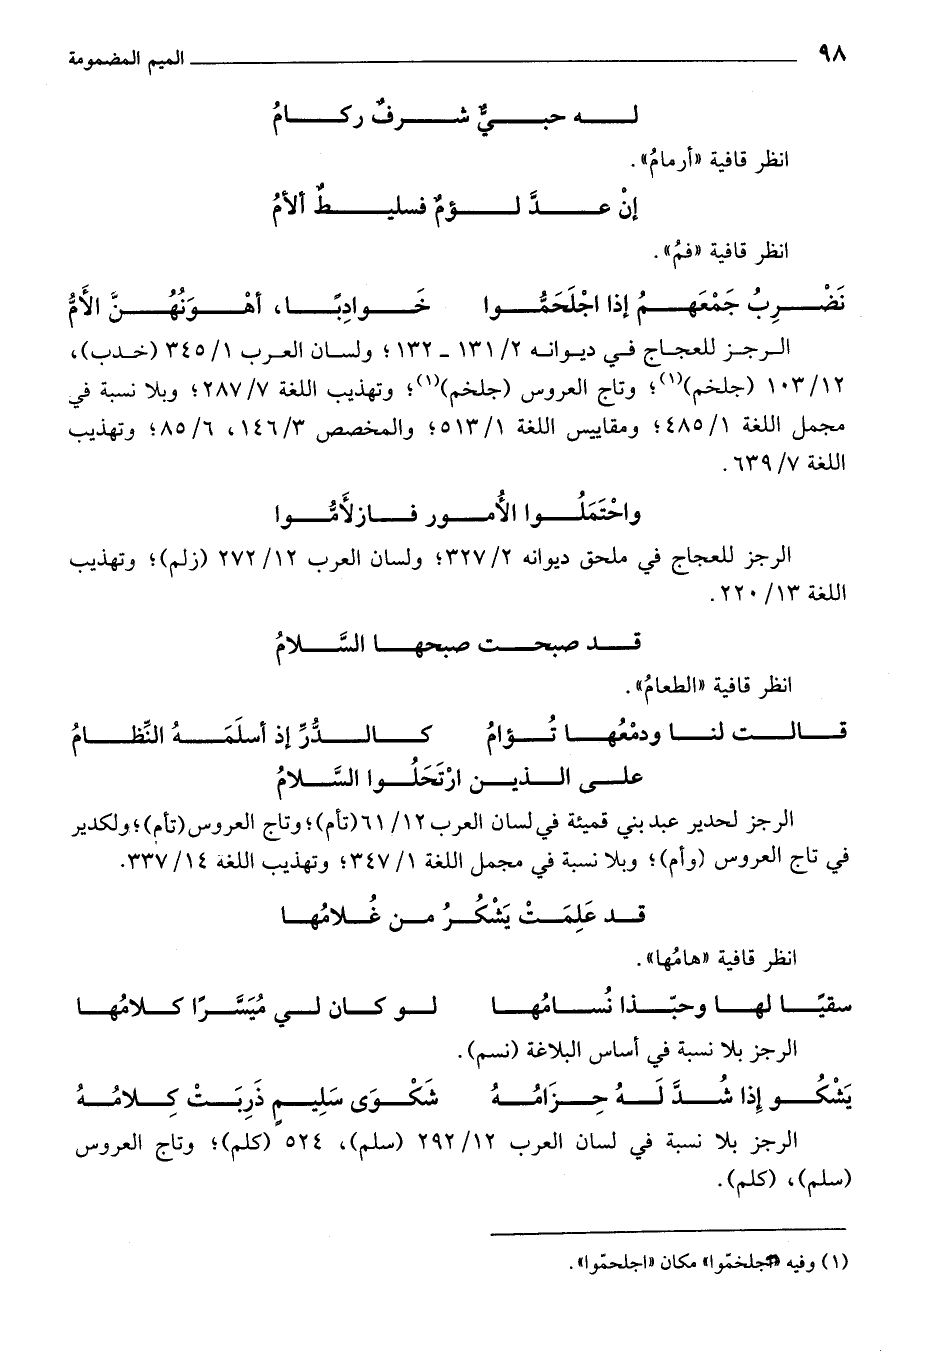 ٩٨ الميم المضمومة
له حبيٌّ شرفٌ ركامُ
انظر قافية «أرمامُ».
إنْ عدَّ لؤمٌ فسليطٌ ألأمُ
انظر قافية «فمُ».
نَضْرِبُ جَمْعَهمُ إذا اجْلَحَمُّوا خَوادِبًا، أهْوَنُهُنَّ الأَمُّ
الرجز للعجاج في ديوانه ٢/ ١٣١ ـ ١٣٢؛ ولسان العرب ١/ ٣٤٥ (خدب)،
١٢/ ١٠٣ (جلخم)(١)؛ وتاج العروس (جلخم)(١)؛ وتهذيب اللغة ٧/ ٢٨٧؛ وبلا نسبة في
مجمل اللغة ١/ ٤٨٥؛ ومقاييس اللغة ١/ ٥١٣؛ والمخصص ٣/ ١٤٦، ٦/ ٨٥؛ وتهذيب
اللغة ٧/ ٦٣٩.
واحْتَمَلُوا الأُمور فازلأَمُّوا
الرجز للعجاج في ملحق ديوانه ٢/ ٣٢٧؛ ولسان العرب ١٢/ ٢٧٢ (زلم)؛ وتهذيب
اللغة ١٣/ ٢٢٠.
قد صبحت صبحها السَّلامُ
انظر قافية «الطعامُ».
قالت لنا ودمْعُها تُؤامُ كالدُّرِّ إذ أسلَمَهُ النِّظامُ
على الذين ارْتَحَلُوا السَّلامُ
الرجز لحدير عبد بني قميئة في لسان العرب ١٢/ ٦١ (تأم)؛ وتاج العروس (تأم)؛ ولكدير
في تاج العروس (وأم)؛ وبلا نسبة في مجمل اللغة ١/ ٣٤٧؛ وتهذيب اللغة ١٤/ ٣٣٧.
قد عَلِمَتْ يَشْكُرُ من غُلامُها
انظر قافية «هامُها».
سقيًا لها وحبّذا نُسامُها لو كان لي مُيَسَّرًا كلامُها
الرجز بلا نسبة في أساس البلاغة (نسم).
يَشْكُو إذا شُدَّ لَهُ حِزَامُهُ شَكْوَى سَلِيمٍ ذَرِبَتْ كِلامُهُ
الرجز بلا نسبة في لسان العرب ١٢/ ٢٩٢ (سلم)، ٥٢٤ (كلم)؛ وتاج العروس
(سلم)، (كلم).
(١) وفيه «اجلخمّوا» مكان «اجلحمّوا».